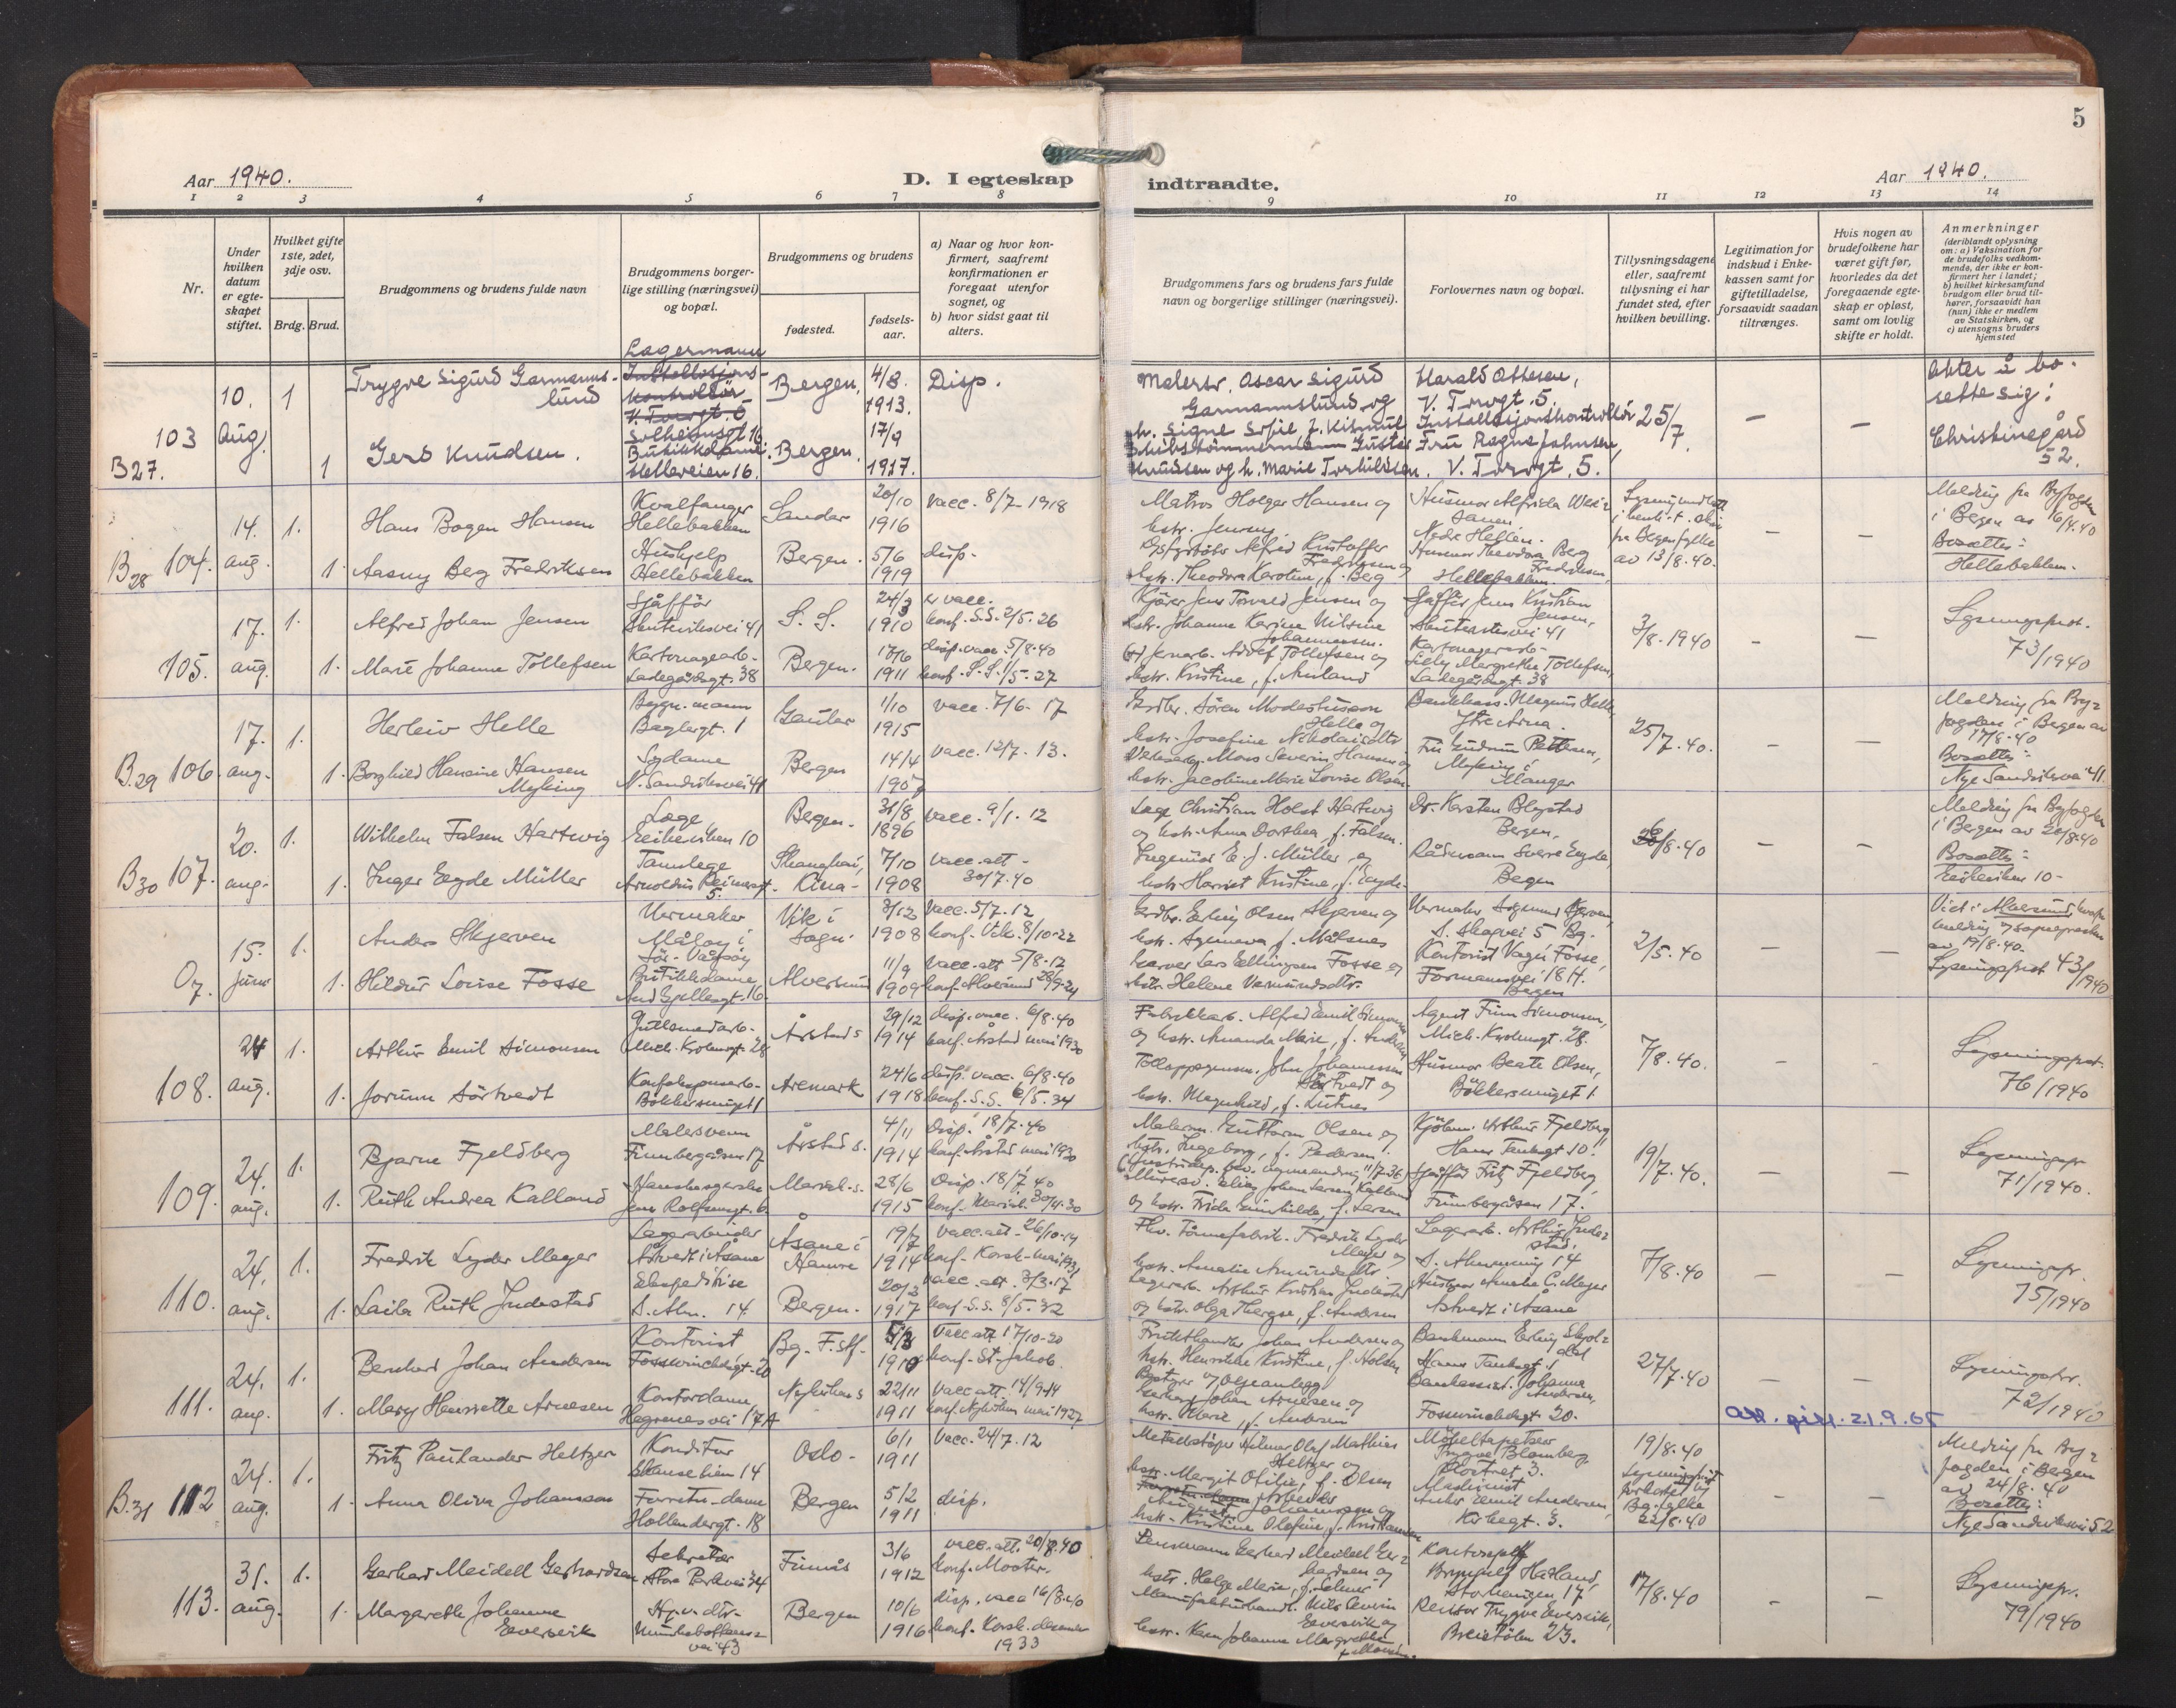 5
Aar 1940.
D. I egteskap
indtraadte.
Aar 1940.
1 2 3 4 5 6 7 8 9 10 11 12 13 14
Nr.
Under hvilken datum er egteskapet stiftet.
Hvilket gifte 1ste, 2det, 3dje osv.
Brdg. Brud.
Brudgommens og brudens fulde navn
Brudgommens borgerlige stilling (næringsvei) og bopæl.
Brudgommens og brudens
fødested.
fødselsaar.
a) Naar og hvor konfirmert, saafremt konfirmationen er foregaat utenfor sognet, og
b) hvor sidst gaat til alters.
Brudgommens fars og brudens fars fulde navn og borgerlige stillinger (næringsvei).
Forlovernes navn og bopæl.
Tillysningsdagene eller, saafremt tillysning ei har fundet sted, efter hvilken bevilling.
Legitimation for indskud i Enkekassen samt for giftetilladelse, forsaavidt saadan tiltrænges.
Hvis nogen av brudefolkene har været gift før, hvorledes da det foregaaende egteskap er opløst, samt om lovlig skifte er holdt.
Anmerkninger
(deriblandt oplysning om: a) Vaksination for de brudefolks vedkommende, der ikke er konfirmert her i landet; b) hvilket kirkesamfund brudgom eller brud tilhører, forsaavidt han (hun) ikke er medlem av Statskirken, og c) utensogns bruders hjemsted
103
B27.
10. Aug.
1
Trygve Sigurd Garmannslund
Lagermann
Installasjonskontrollör
V. Torvgt. 5
Solheimsgt 16
Bergen, 4/8. 1913.
Disp.
1
Gerd Knudsen.
Butikkdame.
Helleveien 16.
Bergen. 17/9 1917.
Malersv. Oscar Sigurd Garmannslund og
h. Signe Sofie f. Kismul
Skibstømmermann Gustav
Knudsen og h. Marie Torkildsen.
Harald Ottesen,
V. Torvgt. 5.
Installasjonskontrollör
Fru Ragna Johnsen,
V. Torvgt. 5.
25/7.
Akter å bosette sig:
Christinegård 52.
B28 104.
14. aug.
1.
Hans Bogen Hansen
Kvalfanger
Hellebakken
Sandar 20/10 1916
vacc. 8/7-1918
1. Aasny Berg Fredriksen
Hushjelp
Hellebakken
Bergen. 5/6 1919
disp.
Matros Holger Hansen og
hstr. Jenny
hstr. Theodora Karoline, f. Berg
Nedr. Hellen.
Husmor Theodora Berg Fredriksen,
Hellebakken
av 13/8.40.
Melding fra Byfogden
i Bergen av
Bosettes:
Hellebakken.
105.
17. aug.
1. Alfred Johan Jensen
Sjåfför
Skuteviksvei 41
S. S. 24/3 1910
er vacc.
konf. S.S. 2/5.26
1. Marie Johanne Tollefsen
Kartonagearb.
Ladegårdsgt. 38
Bergen. 17/6 1911
disp. vacc. 5/8.40
konf. S.S. 1/5.27
Kjörer Jens Torvald Jensen og
hstr. Johanne Karine Nilsine
Johannessen.
hstr. Kristine, f.
Sjåffør Jens Kristian Jensen,
Skuteviksvei 41
Kartonagearb.
Lilly Margrethe Tollefsen,
Ladegårdsgt 38
3/8.1940
Lysningsprot.
73/1940
B29 106.
17. aug.
1. Herleiv Helle
Bygn. mann
Baglergt. 1
Gaular 1/10 1915
vacc. 7/6-17
1. Borghild Hansine Hansen Myking
Sydame
N. Sandviksvei 41
Bergen 14/4 1907
vacc. 12/7.13.
Gbr. Sören Modestusson
Helle og
hstr. Josefine Nikolaisdtr
Mons Severin Hansen og
hstr. Jacobine Marie Lovise Olsen
Bankkass. Magnus Helle,
Ytre Arna.
Fru Gudrun Pettersen,
Myking i
Manger
25/7.40.
Melding fra Byfogden i Bergen av
17/8.40
Bosettes:
Nye Sandviksvei 41.
B30 107.
20. aug.
1. Wilhelm Falsen Hartwig
Læge
Eeikeviken 10
Bergen. 31/8 1896
vacc. 9/1.12
1. Inger Eyde Müller
Tannlege
Arnoldus Reimersgt. 5.
Shanghai, Kina. 7/10 1908
vacc. att.
30/7.40
Læge Christian Holst Hartwig
og hstr. Anna Dorthea, f. Falsen.
Ingeniør E. J. Müller og
hstr. Harriet Kristine, f. Eyde.
Dr. Karsten Blystad
Bergen,
Rådmann Sverre Eyde,
Bergen
/8.40
Melding fra Byfogden
i Bergen av 20/8.40
Bosettes:
Eeikeviken 10.
O7.
15. juni
1. Anders Skjerven
Urmaker
Måløy i
Sör-Vågsøy
Vik i Sogn. 3/12 1908
Vacc. 5/7.12
konf. Vik. 8/10-22
1. Hildur Louise Fosse
Butikkdame
Alversund 11/9 1909
Vacc. att 5/8.12
konf. Alversund 28/9-24
Gbr. Erling Olsen Skjerven og
hstr. Synneva, f. Målsnes
Garver Lars Ellingsen Fosse og
hstr. Helene Vemundsdtr.
Urmaker Sigmund Skjerven,
S. Skogvei 5 Bg.
Kontorist Vagn Fosse,
Formannsvei 18 H.
Bergen
2/5.40
Viet i Alversund,
av 19/8.40.
Lysningsprot 43/1940
108.
24 aug.
1. Arthur Emil Simonsen
Gullsmedarb.
Mich. Krohnsgt. 28
Årstad s 29/12 1914
disp. vacc. 6/8.40
konf. Årstad mai 1930
1. Jorunn Sörtvedt
Konfeksjonsarb.
Bökkersmuget 1
Aremark 24/6 1918
disp. vacc. 6/8.40
konf. S.S. 6/5.34
Fabrikkarb. Alfred Emil Simonsen
og hstr. Amanda Marie, f.
John Johannessen
Sörtvedt og
hstr. Magnhild, f. Lutnes
Agent Finn Simonsen,
Mich. Krohnsgt. 28.
Husmor Beate Olsen,
Bökkersmuget 1.
7/8.40.
Lysningsprot.
76/1940
109.
24. aug.
1. Bjarne Fjeldberg
Malersvenn
Finnbergåsen 17
Årstad s. 4/11 1914
Disp. 18/7.40
konf. Årstad mai 1930
1. Ruth Andrea Kalland
Jens Rolfsensgt. 6
28/6 1915
Disp. 18/7.40
30/11.30
Malerm. Guttorm Olsen og
hstr. Ingeborg, f. Pedersen.
Elias Johan Larsen Kalland
og hstr. Frida Gunhilda, f. Larsen
Kjöbm. Arthur Fjeldberg,
Hans Tanksgt 10.
Sjåffør Fritz Fjeldberg,
Finnbergåsen 17.
19/7.40.
Lysningspr.
71/1940.
110.
24. aug.
1. Fredrik Lyder Meyer
Lagerarbeider
Åstvedt i Åsane
Åsane i Hamre 19/7 1914
vacc. att. 26/10-14
konf. Korsk. mai 1931
1. Laila Ruth Indestad
Ekspeditrise
S. Alm. 14
Bergen. 20/3 1917
vacc. att. 3/3.17
konf. S.S. 8/5.32
Fredrik Lyder
Meyer og
hstr. Amalie Amundsdtr
Lagerarb. Arthur Kristian Indestad
og hstr. Olga Therese, f. Andersen
Lagerarb. Arthur Indestad,
S. Almenning 14
Husmor Amalie C. Meyer
Åstvedt i Åsane
7/8.40
Lysningspr.
75/1940
111.
24. aug.
1. Bernhard Johan Andersen
Kontorist
Fosswinckelsgt. 20
Bg. F. stf.
Vacc att 17/10-20
konf. St. Jakob.
1. Mary Henriette Arnesen
Kontordame
Hegrenesvei 17A
Nykirkens 22/11 1911
Vacc att. 14/9-14
konf. Nykirken mai 1927
Frukthandler Johan Andersen og
hstr. Henrikke Kristine, f. Nolsen
Gerhard Johan Arnesen og
hstr. Marie, f. Andersen
Bankmann Erling Skjoldal
Hans Tanksgt
Bankassist. Johanne
Andersen,
Fosswinckelsgt 20.
27/7.40
Lysningspr.
72/1940
Att. girl. 21.9.65
B.31 112
24. aug.
1. Fritz Paulander Heltzer
Konditor
Skanselien 14
Oslo. 6/1 1911
Vacc. 24/7.12
1. Anna Oliva Johanson
Forretn.-dame
Hollendergt. 18
Bergen 5/2 1911
disp.
Metallstøper Hilmar Olaf Mathias
Heltzer og
hstr. Margit Otilie, f. Olsen
Arbeider
August Johannson og
hstr. Kristine Olefine, f. Kristiansen
Möbeltapetserer
Trygve Blomberg,
Klostret 3.
Maskinist
Emil Andersen,
Kirkegt. 3.
19/8.40
Bg. fylke
22/8.40
Melding fra Byfogden i Bergen
av 24/8.40
Bosettes:
Nye Sandviksvei 52
113.
31. aug.
1. Gerhard Meidell Gerhardsen
Sekretær
Store Parkvei 34
Finnås 3/6 1912
vacc. att. 20/8.40
konf. Moster.
1. Margarethe Johanne Eeversvik
Hj.v. dtr.
Munkebotsveien 43
Bergen 10/6 1916
disp. vacc 16/8.40
konf. Korsk. desember 1933
Lensmann Gerhard Meidell Gerhardsen og
hstr. Helga Marie, f.
Manufakturhandl. Nils
Eeversvik og
hstr. Karen Johanne Margrethe
Kontorsjef
Brynjulf Hatland,
Storhaugen 17,
Revisor Trygve Eeversvik,
Breistølen 23.
17/8.40
Lysningspr.
79/1940